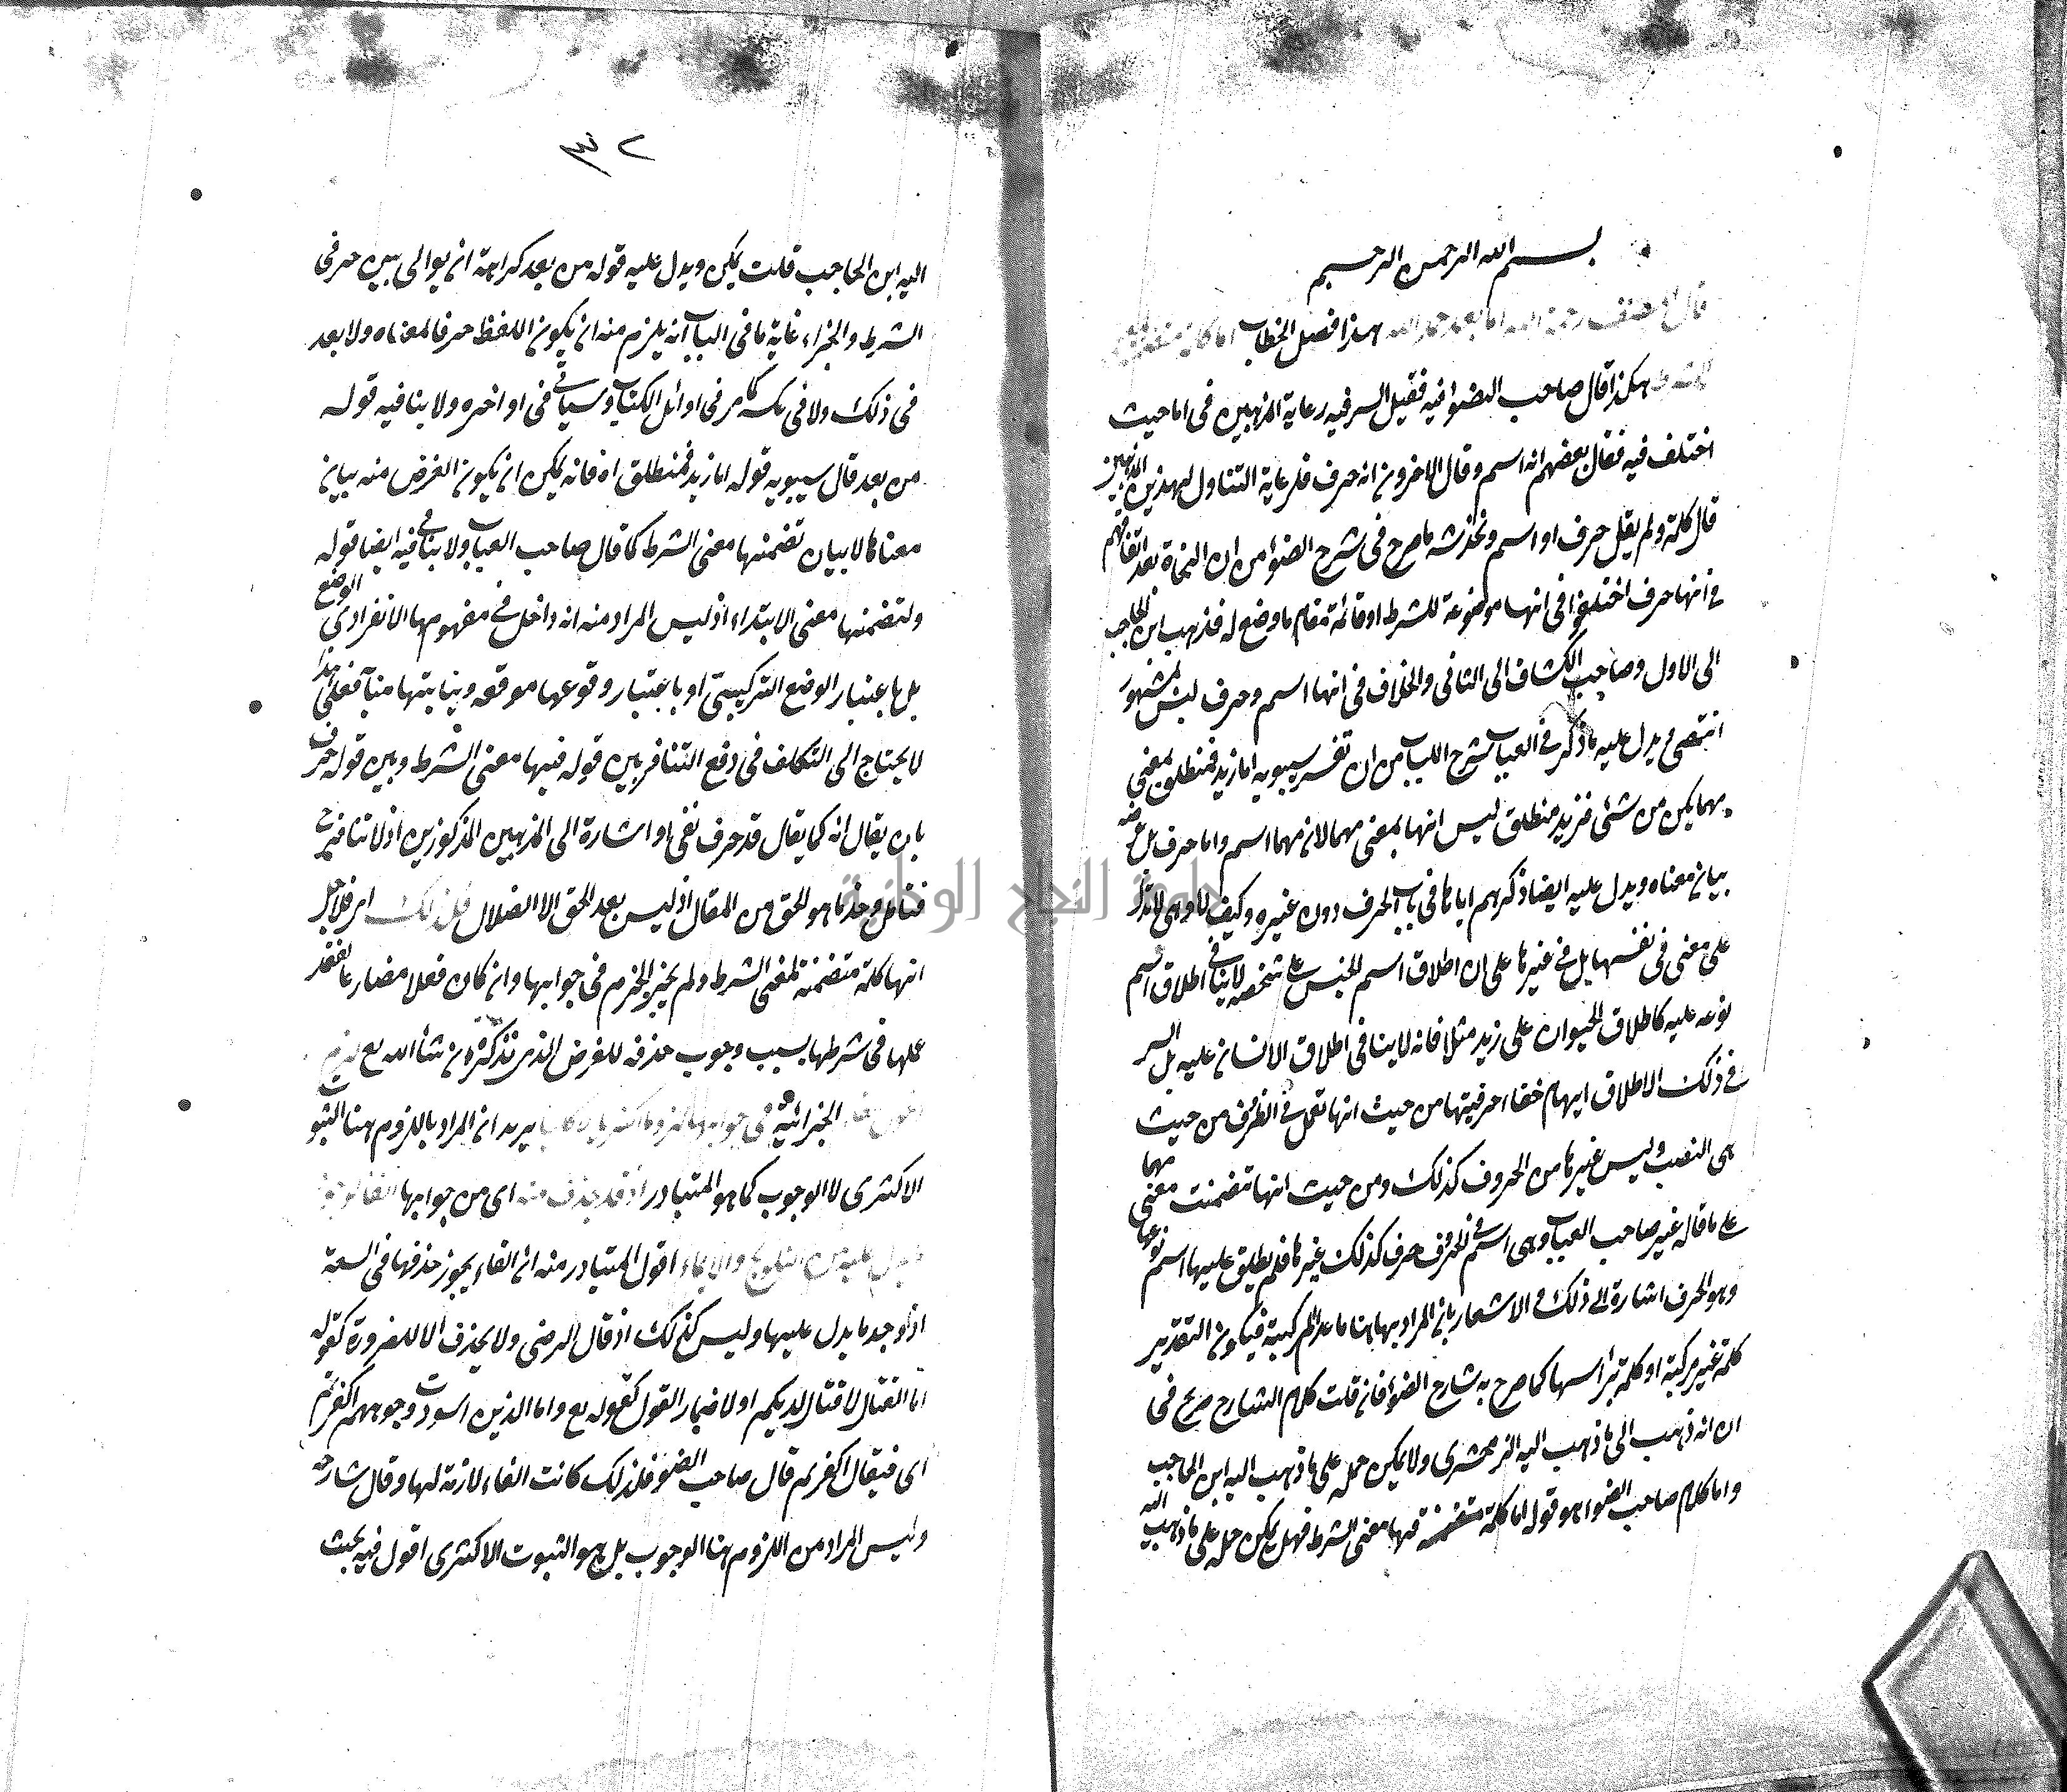 بسم الله الرحمن الرحيم
قال المصنف رحمة الله اما بعد حمد الله هذا فصل الخطاب اما كلمة
هكذا قال صاحب الضوء فيه فقيل السر فيه رعاية المذهبين فى اما حيث
اختلف فيه فقال بعضهم انه اسم وقال الاخرون انه حرف فلرعاية التناول لهذين المذهبين
قال كلمة ولم يقل حرف او اسم ونخدشه ما صرح فى شرح الضوء من ان النحاة بعد اتفاقهم
فى انها حرف اختلفوا فى انها موضوعة للشرط او قائمة مقام ما وضع له فذهب ابن الحاجب
الى الاول وصاحب الكشاف الى الثانى والخلاف فى انها اسم وحرف ليس بمشهور
انتهى ويدل عليه ما ذكر فى العباب شرح اللباب من ان تفسير سيبويه اما زيد فمنطلق بمعنى
مهما يكن من شئ فزيد منطلق ليس انها بمعنى مهما لان مهما اسم واما حرف بل غرضه
بيان معناه ويدل عليه ايضا ذكرهم اياها فى باب الحرف دون غيره وكيف لا وهى لا تدل
على معنى فى نفسها بل فى غيرها على ان اطلاق اسم الجنس على شخصه لا ينافى اطلاق اسم
نوعه عليه كاطلاق الحيوان على زيد مثلا فانه لا ينافى اطلاق الانسان عليه بل السر
فى ذلك الاطلاق ايهام خفاء حرفيتها من حيث انها تعمل فى الظرف من حيث
هى النصب وليس غيرها من الحروف كذلك ومن حيث انها تضمنت معنى مهما
على ما قاله غير صاحب العباب وهى اسم فى الحروف حرف كذلك غيرها فلم يطلق عليها اسم نوعها
وهو الحرف اشارة الى ذلك والاشعار بان المراد بها هنا ما عدا المركبة فيكون التقدير
كلمة غير مركبة او كلمة برأسها كما صرح به شارح الضوء فان قلت كلام الشارح صريح فى
ان انه ذهب الى ما ذهب اليه الزمخشرى ولا يمكن حمله على ما ذهب اليه ابن الحاجب
واما كلام صاحب الضوء هو قول اما كلمة متضمنة فيها معنى الشرط فهل يمكن حمله على ما ذهب اليه
٣٢
اليه ابن الحاجب قلت يمكن ويدل عليه قوله من بعد كراهة ان يوالى بين حرفى
الشرط والجزاء غاية ما فى الباب انه يلزم منه ان يكون اللفظ حرفا لمعناه ولا بعد
فى ذلك ولا فى عكسه كما مر فى اوائل الكتاب وسيأتى فى اواخره ولا ينافيه قوله
من بعد قال سيبويه قوله اما زيد فمنطلق اه فانه يمكن ان يكون الغرض منه بيان
معناها لا بيان تضمنها معنى الشرط كما قال صاحب العباب ولا ينافى فيه ايضا قوله
ولتضمنها معنى الابتداء اذ ليس المراد منه انه داخل فى مفهومها الانفرادى الوضع
بل باعتبار الوضع التركيبى او باعتبار وقوعها موقعه ونيابتها منابه فعلى هذا
لا يحتاج الى التكلف فى دفع التنافر بين قوله فيها معنى الشرط وبين قوله حرف
بان يقال انه كما يقال قد حرف نفى او اشارة الى المذهبين المذكورين اذ لا تنافر ح
فتأمل وخذ ما هو الحق من المقال اذ ليس بعد الحق الا الضلال فلذلك اى فلاجل
انها كلمة متضمنة لمعنى الشرط ولم يجز الجزم فى جوابها وان كان فعلا مضارعا لفقد
عملها فى شرطها بسبب وجوب حذفه للغرض الذى نذكره ان شاء الله تع
الجزائية فى جوابها يريد ان المراد باللزوم هنا الثبوت
الاكثرى لا الوجوب كما هو المتبادر اذ قد يحذف منه اى من جوابها الفاء
عليه من التلويح والايماء اقول المتبادر منه ان الفاء يجوز حذفها فى السعة
اذا وجد ما يدل عليها وليس كذلك اذ قال الرضى ولا يحذف الا للضرورة كقوله
اما القتال لا قتال لديكم او لاضمار القول كقوله تع واما الذين اسودت وجوههم اكفرتم
اى فيقال اكفرتم قال صاحب الضوء فلذلك كانت الفاء لازمة لها وقال شارحه
وليس المراد من اللزوم هنا الوجوب بل هو الثبوت الاكثرى اقول فيه بحث
جامعة النجاح الوطنية